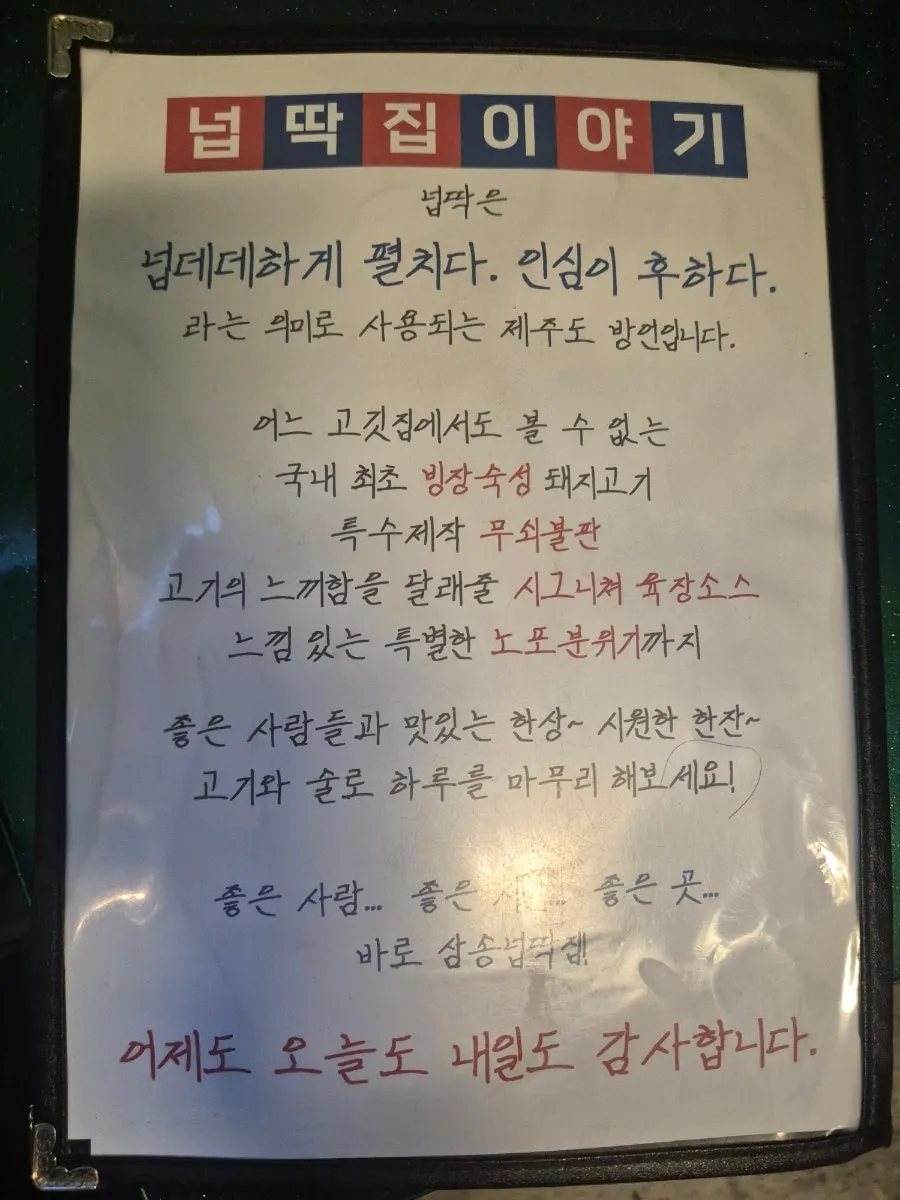 넙딱집이야기
넙딱은
넙데데하게 펼치다. 인심이 후하다.
라는 의미로 사용되는 제주도 방언입니다.
어느 고깃집에서도 볼 수 없는
국내 최초 빙장숙성 돼지고기
특수제작 무쇠불판
고기의 느끼함을 달래줄 시그니쳐 육장소스
느낌 있는 특별한 노포분위기까지
좋은 사람들과 맛있는 한상~ 시원한 한잔~
고기와 술로 하루를 마무리 해보세요!
좋은 사람... 좋은 ... 좋은 곳...
바로 삼송넙딱집!
어제도 오늘도 내일도 감사합니다.